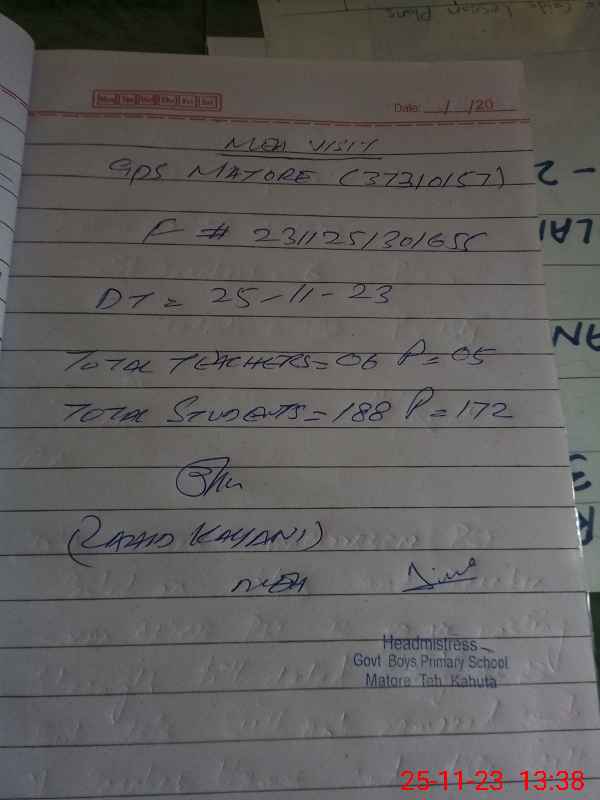 Mon Tue Wed Thu Fri Sat
Date: / /20
MEA VISIT
GPS MATORE (37310157)
F # 231125/301655
DT = 25-11-23
TOTAL TEACHERS = 06 P = 05
TOTAL STUDENTS = 188 P = 172
KAYANI)
MEA
Headmistress
Govt Boys Primary School
Matore Teh Kahuta
25-11-23 13:38